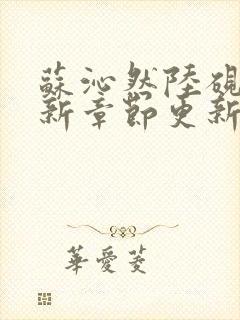 蘇沁然陸硯
新章節更新
華愛菱